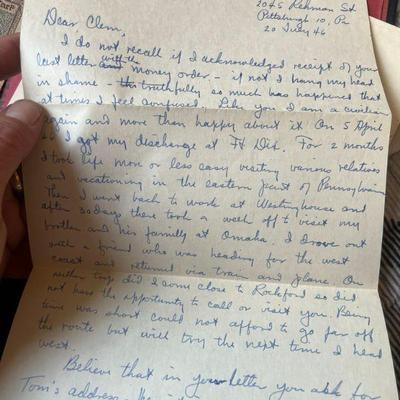 2045 Rehman St
Pittsburgh 10, Pa
20 July 46
Dear Clem,
I do not recall if I acknowledged receipt of your
last letter with the money order - if not I hang my head
in shame - truthfully so much has happened that
at times I feel confused. Like you I am a civilian
again and more than happy about it. On 5 April
I got my discharge at Ft Dix. For 2 months
I took life more or less easy visiting various relatives
and vacationing in the eastern part of Pennsylvania
Then I went back to work at Westinghouse and
after 30 days there took a week off to visit my
brother and his family at Omaha. I drove out
with a friend who was heading for the west
coast and returned via train and plane. On
neither trip did I come close to Rockford so did
not have the opportunity to call or visit you. Being
time was short could not afford to go far off
the route but will try the next time I head
west.
Believe that in your letter you ask for
Tom's address.